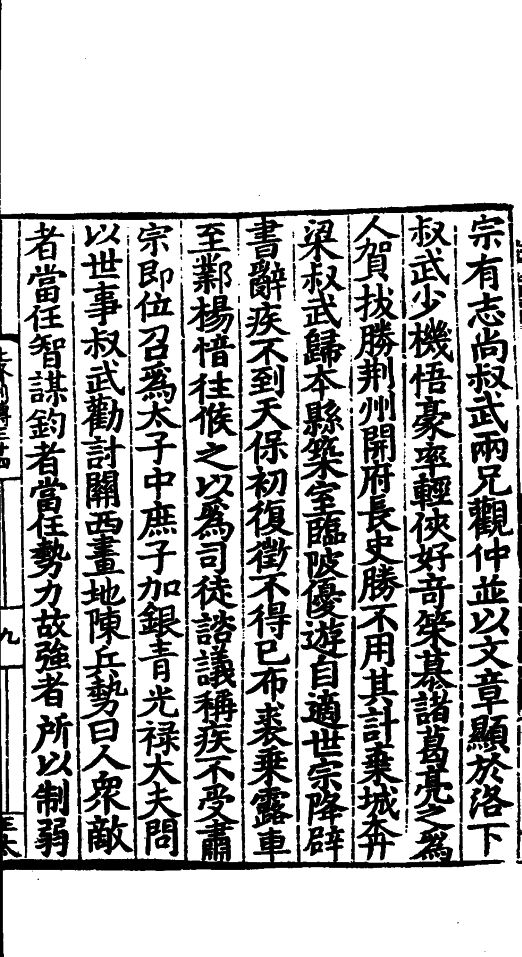 宗有志尚叔武兩兄觀仲並以文章顯於洛下
叔武少機悟豪率輕俠好竒筞慕諸葛亮之爲
人賀拔勝荆州開府長史勝不用其計棄城奔
梁叔武歸本縣築室臨陂優遊自適世宗降辟
書辭疾不到天保初復徵不得已布裘乗露車
至鄴楊愔往候之以爲司徒諮議稱疾不受肅
宗即位召爲太子中庶子加銀青光禄大夫問
以世事叔武勸討關西畫地陳兵勢曰人衆敵
者當任智謀鈞者當任勢力故強者所以制弱
九